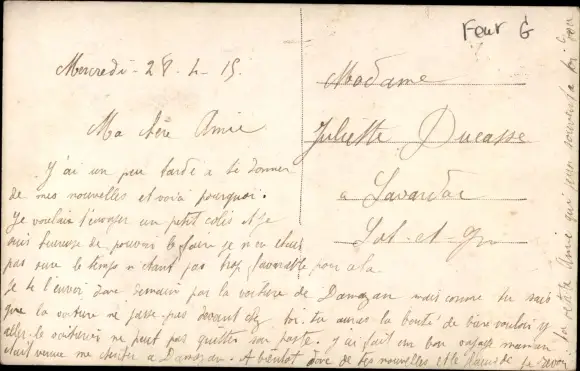 Feur G
Mercredi - 28 - 4 - 15.
Ma chère Amie
J'ai un peu tardé a te donner
de mes nouvelles et voila pourquoi.
Je voulais t'envoyer un petit colis et je
suis heureuse de pouvoir le faire je n'en étais
pas sure le temps n'étant pas trop favorable pour cela.
Je te l'envoi donc demain par la voiture de Damazan mais comme tu sais
que la voiture ne passe pas devant chez toi, tu auras la bonté de bien vouloir y
aller, le voiturier ne peut pas quitter son poste. J'ai fait un bon voyage maman
était venue me chercher a Damazan. A bientôt donc de tes nouvelles et le plaisir de te revoir
ta petite Amie qui souvent a toi
Madame
Juliette Ducasse
a Lavardac
Lot-et-Gne